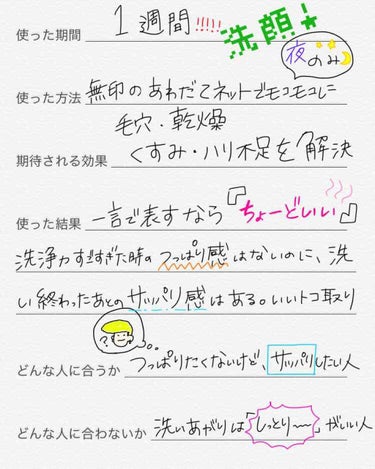 使った期間 1週間!!!!! 洗顔!
夜のみ
使った方法 無印のあわだてネットでモコモコに
毛穴・乾燥
期待される効果 くすみ・ハリ不足を解決
使った結果 一言で表すなら『ちょーどいい』
洗浄力すぎた時のつっぱり感はないのに、洗
い終わったあとのサッパリ感はある。いいトコ取り
?
どんな人に合うか つっぱりたくないけど、サッパリしたい人
どんな人に合わないか 洗いあがりは「しっとり〜〜」がいい人